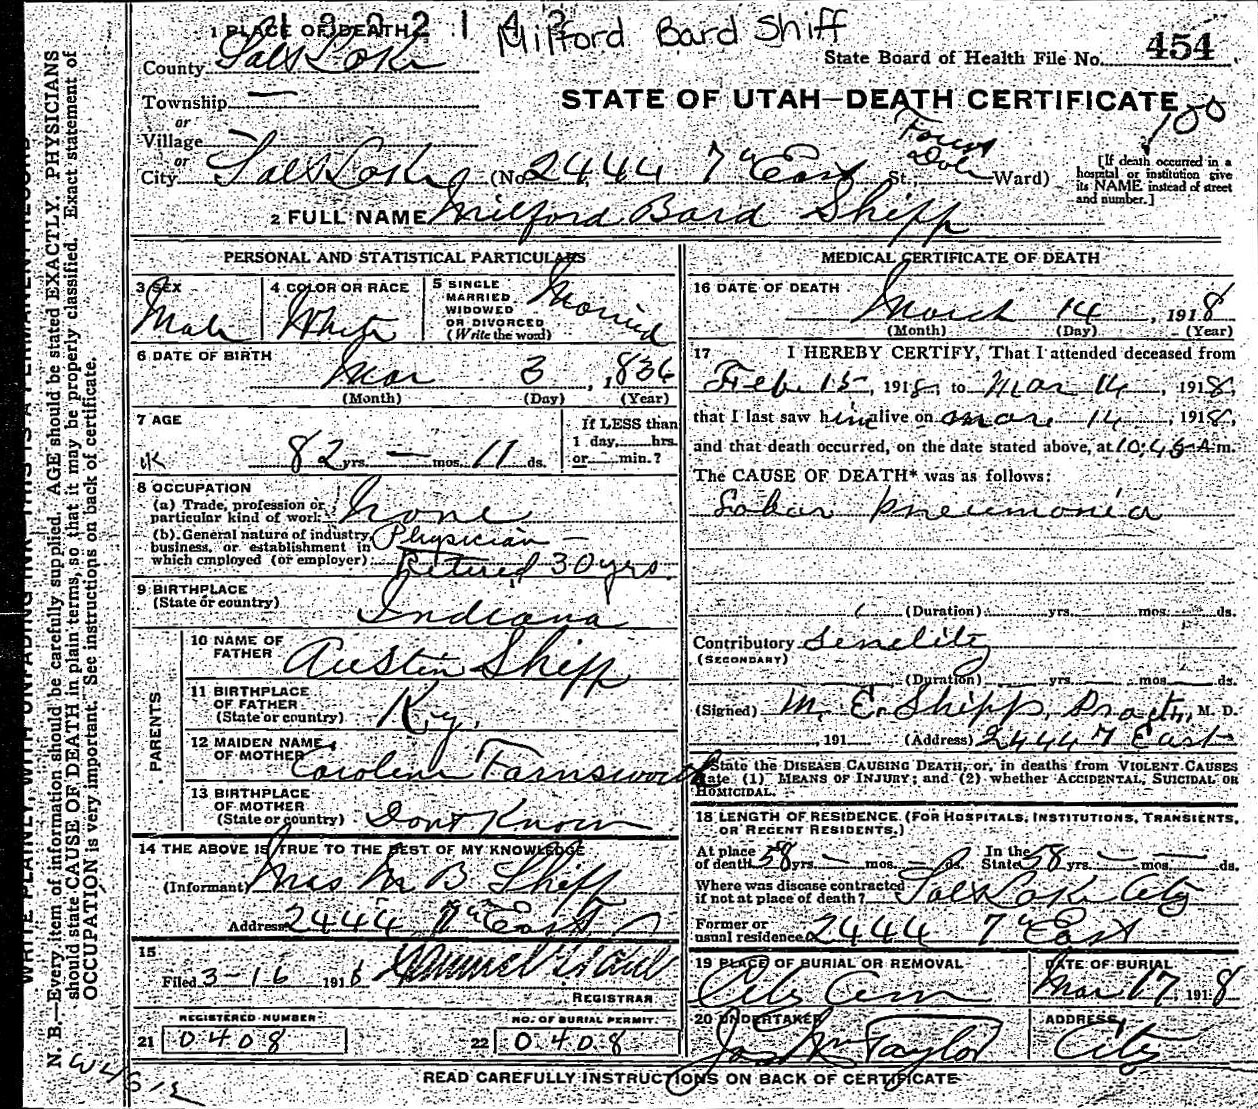 Milford Bard Shiff
1 PLACE OF DEATH
State Board of Health File No. 454
County Salt Lake
Township —
or
STATE OF UTAH—DEATH CERTIFICATE
100
Village —
or
City Salt Lake (No. 2444 7th East St., Ward)
[If death occurred in a
hospital or institution give
its NAME instead of street
and number.]
2 FULL NAME Milford Bard Shipp
PERSONAL AND STATISTICAL PARTICULARS
3 SEX
Male
4 COLOR OR RACE
White
5 SINGLE
MARRIED
WIDOWED
OR DIVORCED
(Write the word)
Married
6 DATE OF BIRTH
Mar 3, 1836
(Month) (Day) (Year)
7 AGE
82 yrs. — mos. 11 ds.
If LESS than
1 day, hrs.
or min.?
OK
8 OCCUPATION
(a) Trade, profession or
particular kind of work None
(b) General nature of industry
business, or establishment in
which employed (or employer)
Physician —
Retired 30 yrs.
9 BIRTHPLACE
(State or country)
Indiana
PARENTS
10 NAME OF
FATHER
Austin Shipp
11 BIRTHPLACE
OF FATHER
(State or country)
Ky.
12 MAIDEN NAME
OF MOTHER
Caroline Farnsworth
13 BIRTHPLACE
OF MOTHER
(State or country)
Dont Know
14 THE ABOVE IS TRUE TO THE BEST OF MY KNOWLEDGE
(Informant) Mrs M B Shipp
Address 2444 7th East
15
Filed 3-16 1918
REGISTRAR
REGISTERED NUMBER
21 0408
NO. OF BURIAL PERMIT.
22 0408
MEDICAL CERTIFICATE OF DEATH
16 DATE OF DEATH
March 14, 1918
(Month) (Day) (Year)
17 I HEREBY CERTIFY, That I attended deceased from
Feb. 15, 1918, to Mar 14, 1918,
that I last saw him alive on Mar 14, 1918,
and that death occurred, on the date stated above, at 10:45 A.m.
The CAUSE OF DEATH* was as follows:
Lobar Pneumonia
(Duration) yrs. mos. ds.
Contributory Senelity
(SECONDARY)
(Duration) yrs. mos. ds.
(Signed) M. E. Shipp, M. D.
, 191 (Address) 2444 7 East
*State the DISEASE CAUSING DEATH, or, in deaths from VIOLENT CAUSES
state (1) MEANS OF INJURY; and (2) whether ACCIDENTAL, SUICIDAL OR
HOMICIDAL.
18 LENGTH OF RESIDENCE (FOR HOSPITALS, INSTITUTIONS, TRANSIENTS,
OR RECENT RESIDENTS.)
At place
of death 58 yrs. — mos. — ds. In the
State 58 yrs. — mos. — ds.
Where was disease contracted
if not at place of death? Salt Lake City
Former or
usual residence 2444 7th East
19 PLACE OF BURIAL OR REMOVAL
City Cem
DATE OF BURIAL
Mar 17, 1918
20 UNDERTAKER
Jos Wm Taylor
ADDRESS
City
READ CAREFULLY INSTRUCTIONS ON BACK OF CERTIFICATE
WRITE PLAINLY, WITH UNFADING INK—THIS IS A PERMANENT RECORD
N. B.—Every item of information should be carefully supplied. AGE should be stated EXACTLY. PHYSICIANS
should state CAUSE OF DEATH in plain terms, so that it may be properly classified. Exact statement of
OCCUPATION is very important. See instructions on back of certificate.